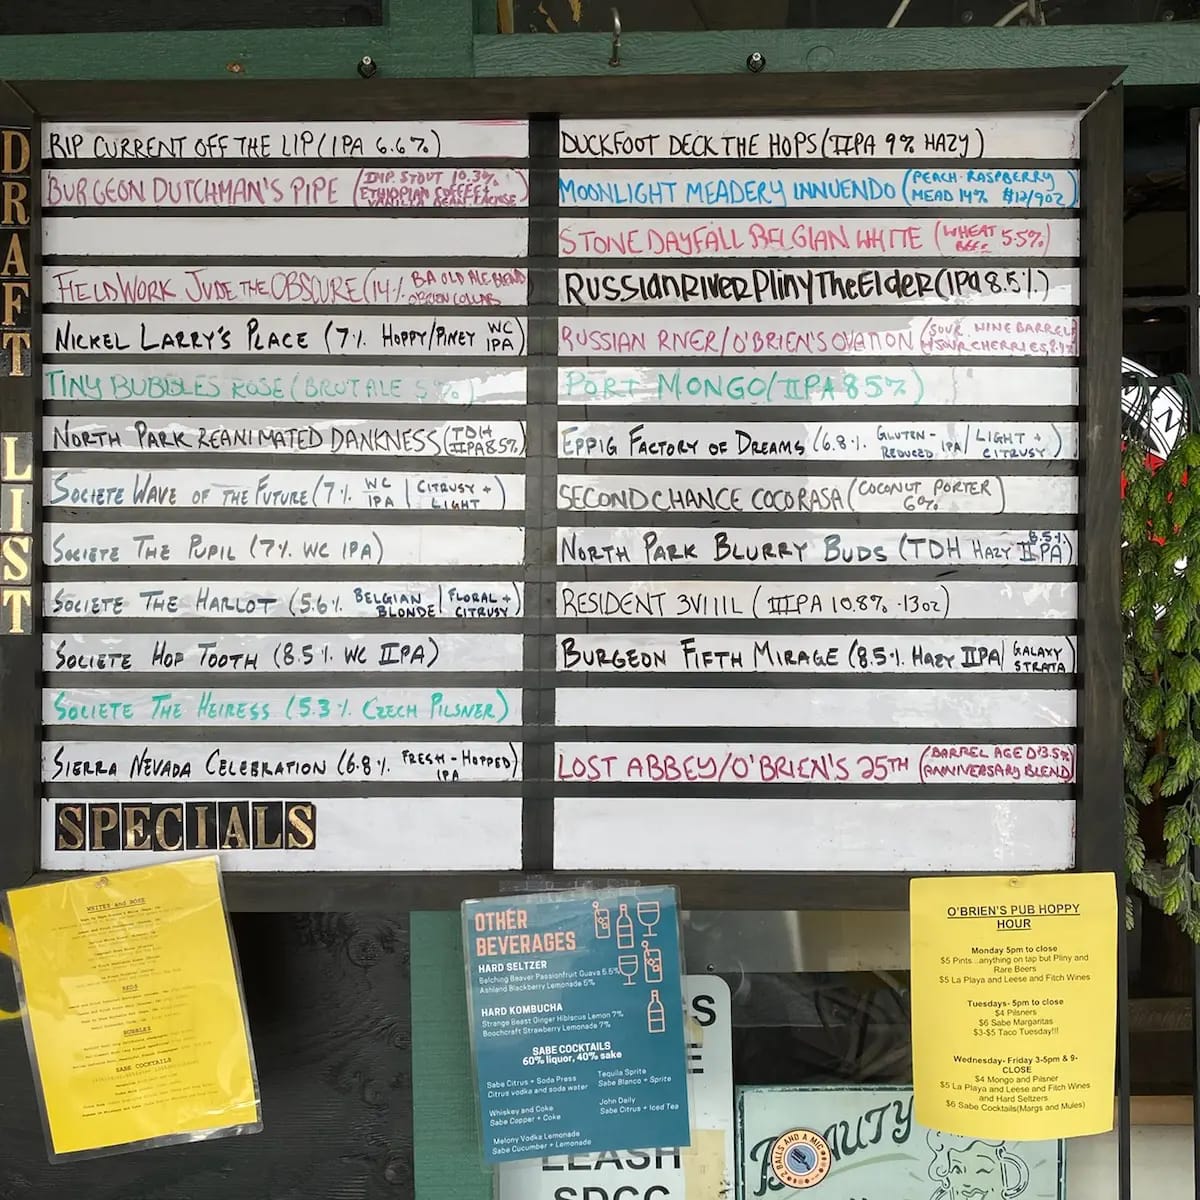 DRAFT LIST
RIP CURRENT OFF THE LIP (IPA 6.6%)
BURGEON DUTCHMAN'S PIPE (IMP. STOUT 10.3%
ETHIOPIAN COFFEE +
VANILLA BEAN
FIELDWORK JUDE THE OBSCURE (14% BA OLD ALE BLEND
O'BRIEN COLLAB
NICKEL LARRY'S PLACE (7% HOPPY/PINEY WC
IPA)
TINY BUBBLES ROSE (BRUT ALE 5 %)
NORTH PARK REANIMATED DANKNESS (TDH
IIPA 8.5%)
SOCIETE WAVE OF THE FUTURE (7% WC
IPA | CITRUSY +
LIGHT)
SOCIETE THE PUPIL (7% WC IPA)
SOCIETE THE HARLOT (5.6% BELGIAN
BLONDE | FLORAL +
CITRUSY)
SOCIETE HOP TOOTH (8.5% WC IIPA)
SOCIETE THE HEIRESS (5.3% CZECH PILSNER)
SIERRA NEVADA CELEBRATION (6.8% FRESH-HOPPED
IPA)
SPECIALS
DUCKFOOT DECK THE HOPS (IIPA 9% HAZY)
MOONLIGHT MEADERY INNUENDO (PEACH-RASPBERRY
MEAD 14% $12/9OZ)
STONE DAYFALL BELGIAN WHITE (WHEAT
BEER 5.5%)
RUSSIAN RIVER Pliny The Elder (IPA 8.5%)
RUSSIAN RIVER/O'BRIEN'S OVATION (SOUR WINE BARREL
+SOUR CHERRIES
PORT MONGO (IIPA 8.5%)
EPPIG FACTORY OF DREAMS (6.8% GLUTEN-
REDUCED IPA/ LIGHT +
CITRUSY)
SECOND CHANCE COCORASA (COCONUT PORTER
6%)
NORTH PARK BLURRY BUDS (TDH HAZY IIPA) 8.5%
RESIDENT 3VIIIL (IIIPA 10.8% -13oz)
BURGEON FIFTH MIRAGE (8.5% HAZY IIPA/ GALAXY
STRATA)
LOST ABBEY/O'BRIEN'S 25TH (BARREL AGED 13.5%
ANNIVERSARY BLEND)
WHITES and ROSE
REDS
BUBBLES
SABE COCKTAILS
OTHER
BEVERAGES
HARD SELTZER
Belching Beaver Passionfruit Guava 5.5%
Ashland Blackberry Lemonade 5%
HARD KOMBUCHA
Strange Beast Ginger Hibiscus Lemon 7%
Boochcraft Strawberry Lemonade 7%
SABE COCKTAILS
60% liquor, 40% sake
Sabe Citrus + Soda Press
Citrus vodka and soda water
Tequila Sprite
Sabe Blanco + Sprite
Whiskey and Coke
Sabe Copper + Coke
John Daily
Sabe Citrus + Iced Tea
Melony Vodka Lemonade
Sabe Cucumber + Lemonade
O'BRIEN'S PUB HOPPY
HOUR
Monday 5pm to close
$5 Pints...anything on tap but Pliny and
Rare Beers
$5 La Playa and Leese and Fitch Wines
Tuesdays- 5pm to close
$4 Pilsners
$6 Sabe Margaritas
$3-$5 Taco Tuesday!!!
Wednesday- Friday 3-5pm & 9-
CLOSE
$4 Mongo and Pilsner
$5 La Playa and Leese and Fitch Wines
and Hard Seltzers
$6 Sabe Cocktails(Margs and Mules)
S
E
LEASH
SDCC
BEAUTY
2 BALLS AND A MIC